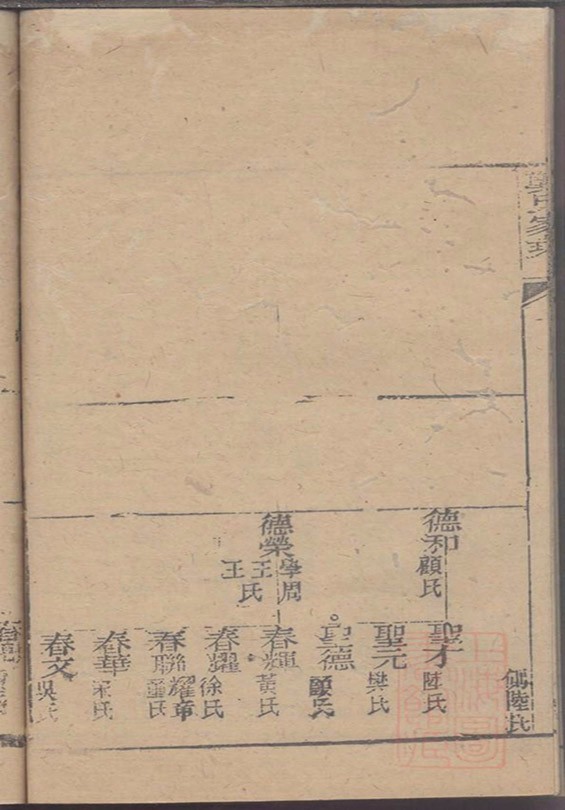 陸氏
德和
顧氏
聖才
陸氏
聖元
樊氏
聖德
顧氏
德榮
學周
王氏
王
春輝
黃氏
春耀
徐氏
春聯
耀章
春華
春文
吳氏